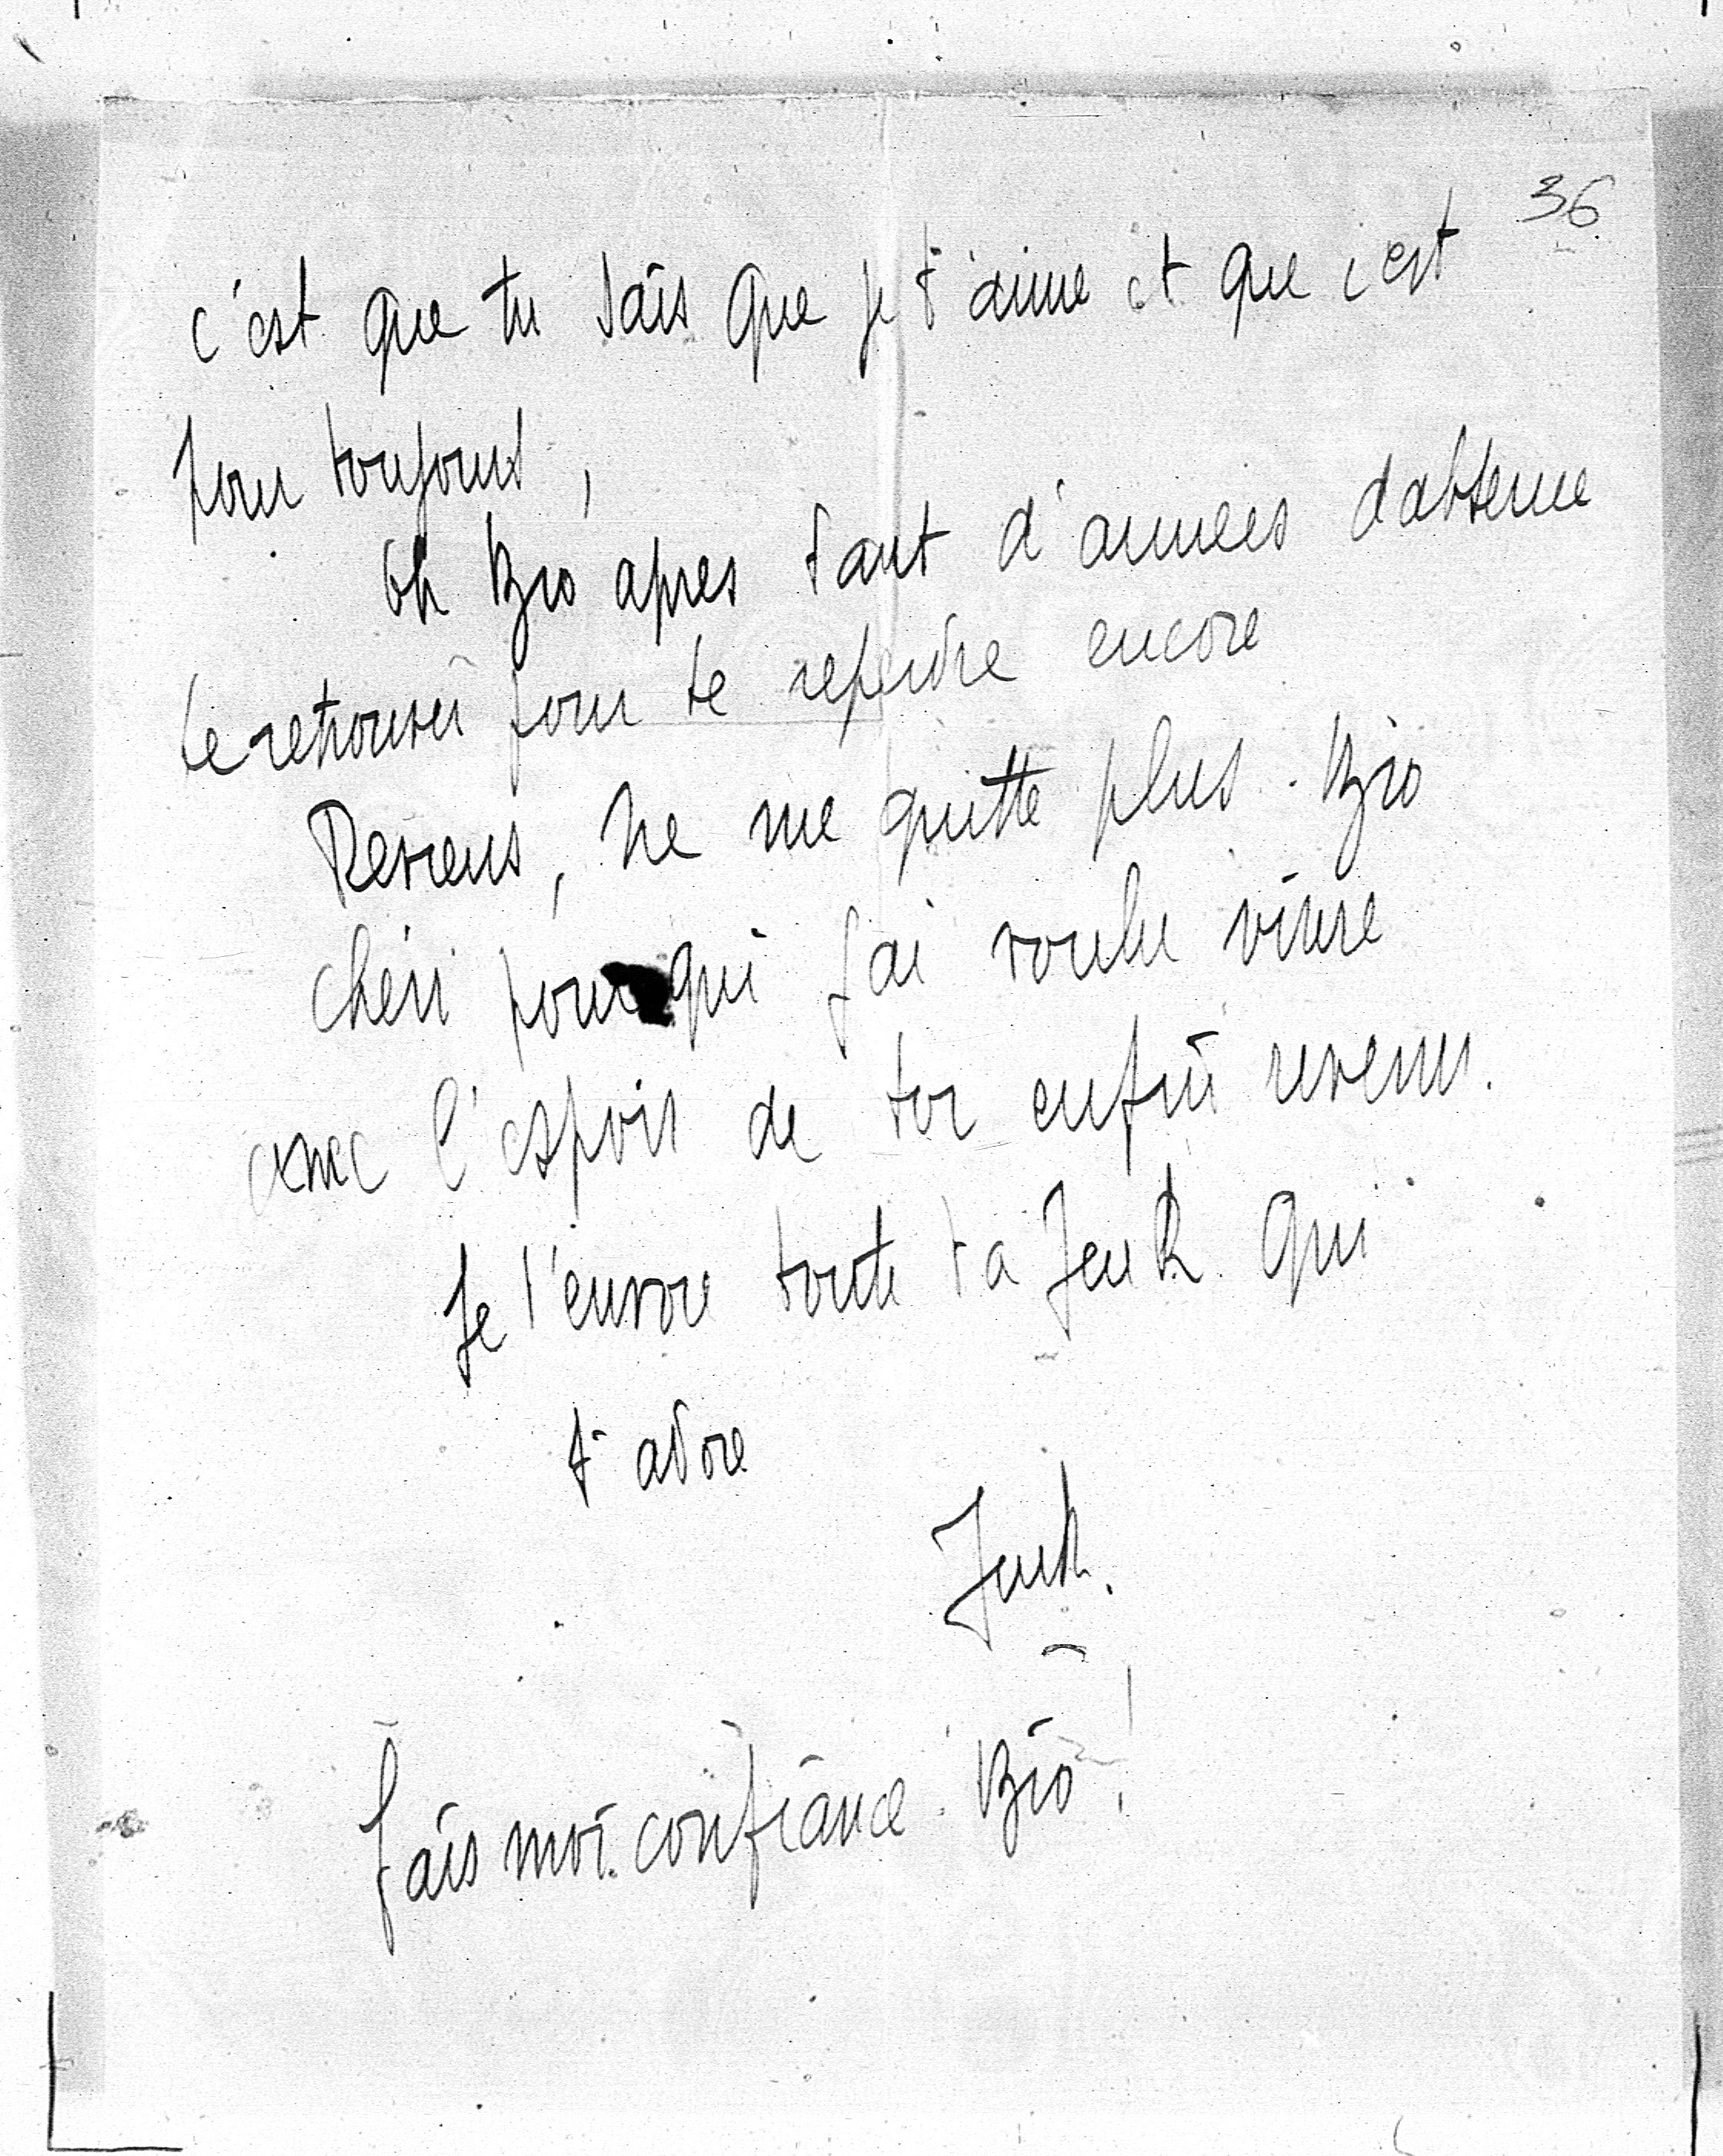 36
c'est que tu sais que je t'aime et que c'est
pour toujours,
Oh Bio apres tant d'années d'absence
te retrouver pour te reperdre encore
Reviens, ne me quitte plus. Bio
chéri pour qui j'ai voulu vivre
avec l'espoir de toi enfin revenu.
Je t'envoie toute ta Jenk qui
t'adore
Jenk.
fais moi confiance. Bio !